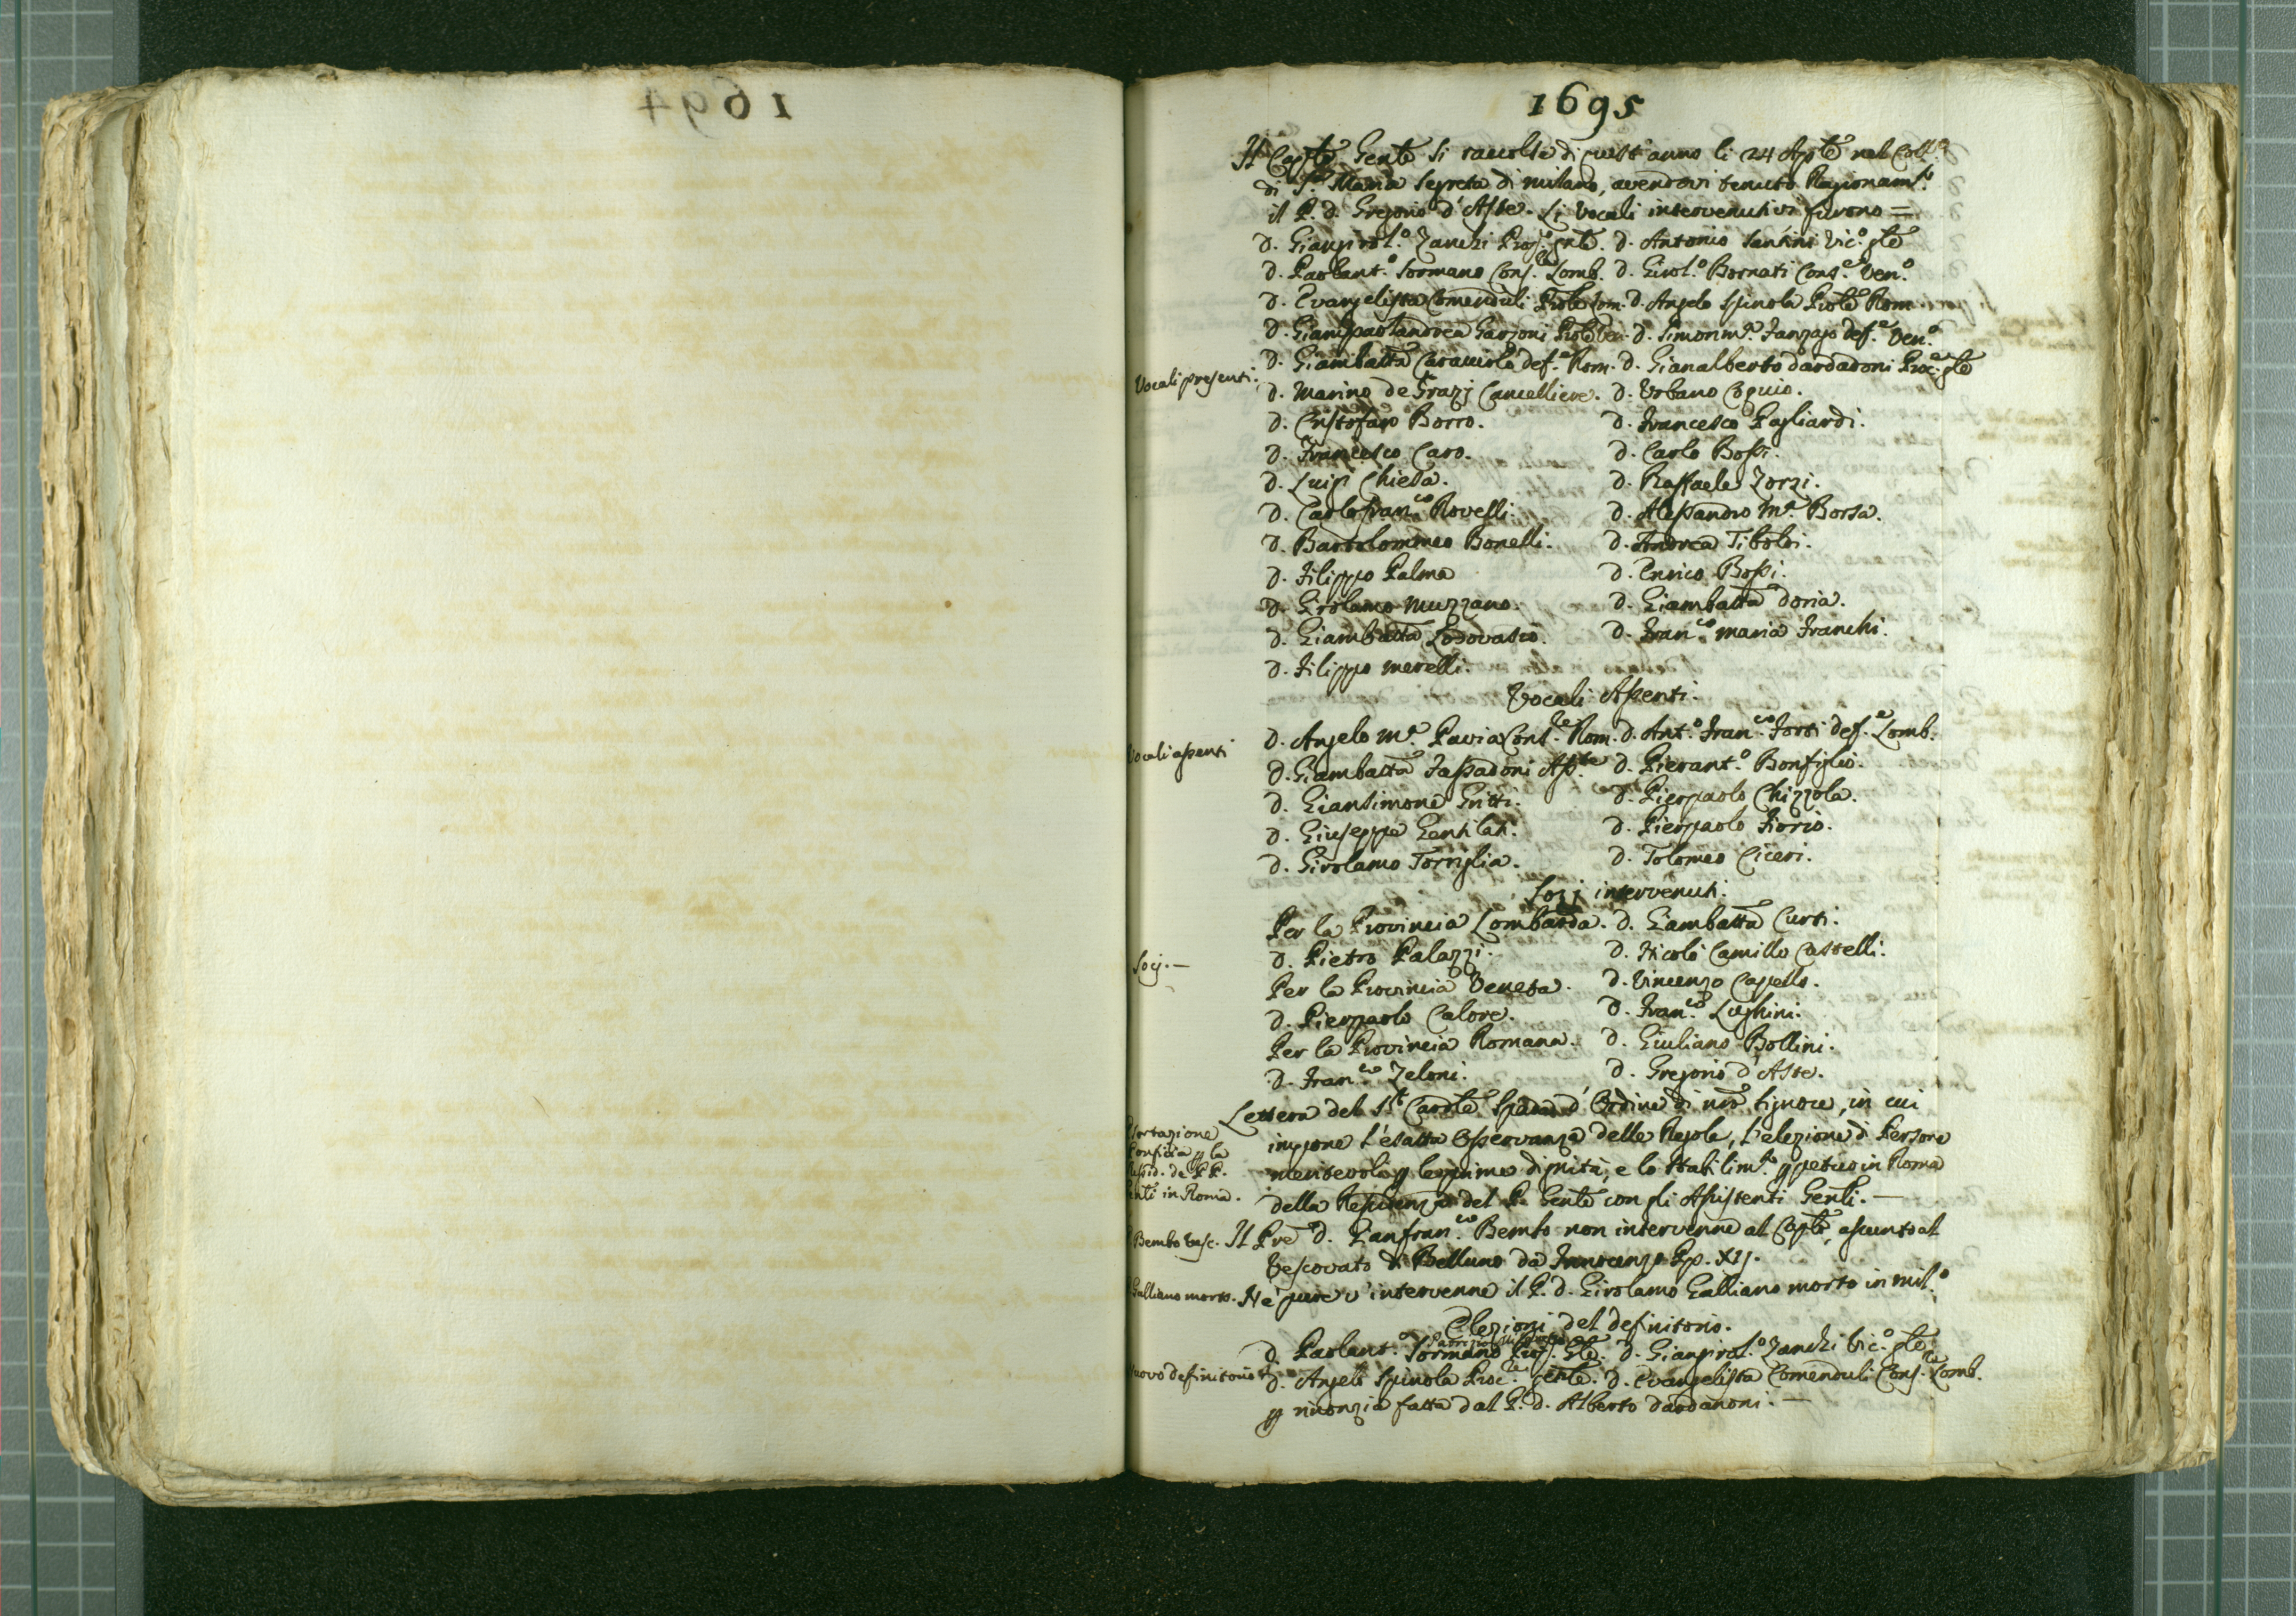 1695
Il Cap.le Gen.le si raccolse di quest'anno li 24 Ap.le nel Coll.o
di S.a Maria Segreta di Milano, avendovi tenuto Ragionam.to
il P. d. Gregorio d'Aste. Li Vocali intervenutivi furono =
Vocali presenti.
d. Giangirol.o Zanchi d. Antonio Santini Vic.o gle
d. Paolant.o Sormano Cons.re Lomb. d. Girol.o Bornati Cons.e Ven.o
d. Evangelista Comenduli Prôle Lom. d. Angelo Spinola Prôle Rom
d. Gianpaolandrea Garzoni Prôle Ven. d. Simonm.a Zanzajo def.e Ven.o
d. Giambatta Caracciolo def.e Rom. d. Gianalberto dardanoni Proc.e gle
d. Marino de Grazj Cancelliere. d. Urbano Cogcio.
d. Cristoforo Borro. d. Francesco Pagliardi.
d. Francesco Caro. d. Carlo Bossi.
d. Luigi Chiesa. d. Raffaele Zorzi.
d. Carlofran.co Rovelli. d. Alessandro M.a Borsa.
d. Bartolommeo Bonelli. d. Andrea Tiboldi.
d. Filippo Palma d. Enrico Bossi.
d. Girolamo Muzzano. d. Giambatta doria.
d. Giambatta Lodovasio. d. Fran.co maria Franchi.
d. Filippo Merelli.
Vocali Assenti.
Vocali assenti
d. Angelo M.a Pavia Cons.re Rom. d. Ant.o Fran.co Forti def.e Lomb.
d. Giambatta Fassadoni Ass.te d. Pierant.o Bonfiglio.
d. Giansimone Gritti. d. Pierpaolo Chizzola.
d. Giuseppe Gentilati. d. Pierpaolo Fiorio.
d. Girolamo Torriglia. d. Tolomeo Ciceri.
Sozj intervenuti.
Socj. —
Per la Provincia Lombarda. d. Giambatta Curti.
d. Pietro Palazzi. d. Nicolò Camillo Castelli.
Per la Provincia Veneta. d. Vincenzo Capello.
d. Pierpaolo Calore. d. Fran.co Lughini.
Per la Provincia Romana. d. Giuliano Bollini.
d. Fran.co Zeloni. d. Gregorio d'Aste.
Lettera del Sr Cardle Spada d'Ordine di nro Signore, in cui
impone l'esatta Osservanza delle Regole, l'elezione di Persone
meritevoli p le prime dignità, e lo stabilim.to ppetuo in Roma
della Residenza del P. Gente con gli Assistenti Genli. —
in Roma.
Bembo Vesc. Il Pre d. Gianfran.co Bembo non intervenne al Caple, assunto al
Vescovato di Belluno da Innocenzo Pp. XII.
Galliano morto. Nè pure v'intervenne il P. d. Girolamo Galliano morto in Mil.o
Elezioni del definitorio.
nuovo definitorio
d. Paolant.o Sormano d. Giangirol.o Zanchi Vic.o gle
d. Angelo Spinola Proc.re Genle. d. Evangelista Comenduli Cons.re Lomb.
p rinonzia fatta dal P. d. Alberto dardanoni. —
1694